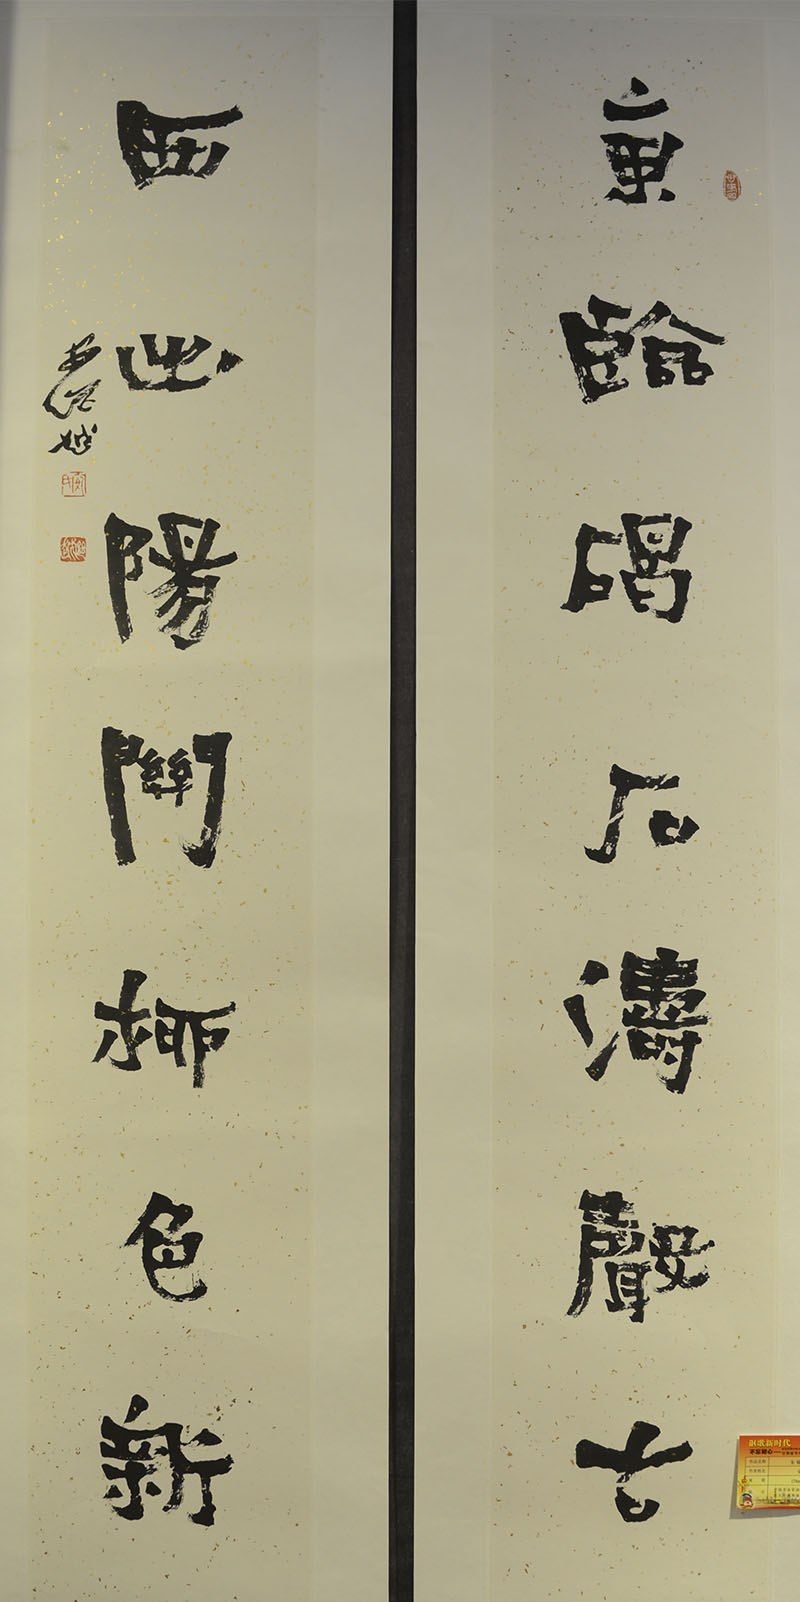 東臨碣石濤聲古
西出陽關柳色新
讴歌新时代
不忘初心